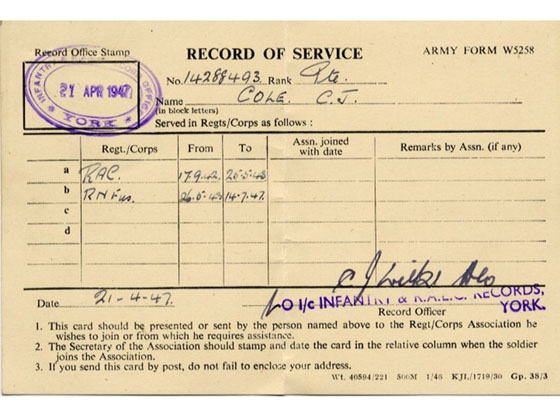 Record Office Stamp
RECORD OF SERVICE
ARMY FORM W5258
INFANTRY
OFFICE
21 APR 1947
YORK
No. 14288493 Rank Pte.
Name COLE. C.J.
(in block letters)
Served in Regts/Corps as follows :
Regt./Corps From To Assn. joined with date Remarks by Assn. (if any)
a RAC. 17.9.42.
b RNFus. 14.7.47.
c
d
Date 21-4-47.
O I/c INFANTRY & R.A.E.C. RECORDS,
YORK.
Record Officer
1. This card should be presented or sent by the person named above to the Regt/Corps Association he
wishes to join or from which he requires assistance.
2. The Secretary of the Association should stamp and date the card in the relative column when the soldier
joins the Association.
3. If you send this card by post, do not fail to enclose your address.
Wt. 40594/221 500M 1/46 KJL/1719/30 Gp. 38/3